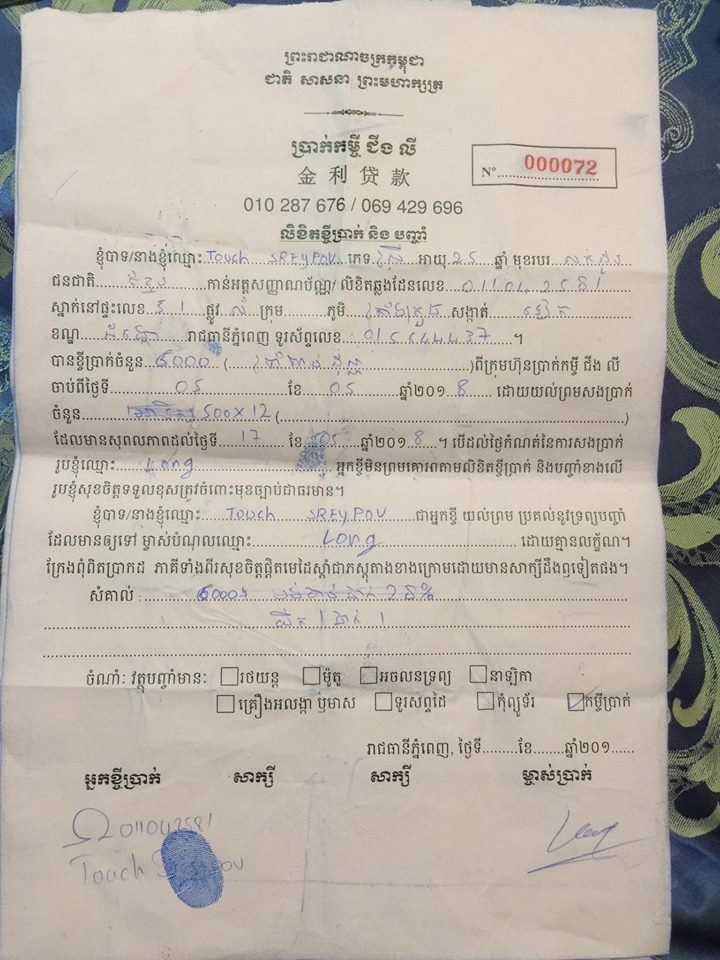 ព្រះរាជាណាចក្រកម្ពុជា
ជាតិ សាសនា ព្រះមហាក្សត្រ
ប្រាក់កម្ចី ជីង លី
金利贷款
Nº 000072
010 287 676 / 069 429 696
លិខិតខ្ចីប្រាក់ និង បញ្ចាំ
ខ្ញុំបាទ/នាងខ្ញុំឈ្មោះ Touch SREYPOV ភេទ ស្រី អាយុ 25 ឆ្នាំ មុខរបរ
ជនជាតិ ខ្មែរ កាន់អត្តសញ្ញាណប័ណ្ណ/ លិខិតឆ្លងដែនលេខ 011042581
ស្នាក់នៅផ្ទះលេខ ផ្លូវ លំ ក្រុម ភូមិ សង្កាត់
ខណ្ឌ រាជធានីភ្នំពេញ ទូរស័ព្ទលេខ ។
បានខ្ចីប្រាក់ចំនួន 6000 ( ប្រាំពាន់ដុល្លា )ពីក្រុមហ៊ុនប្រាក់កម្ចី ជីង លី
ចាប់ពីថ្ងៃទី 05 ខែ 05 ឆ្នាំ២០១ 8 ដោយយល់ព្រមសងប្រាក់
ចំនួន 500X12 ( )
ដែលមានសុពលភាពដល់ថ្ងៃទី 17 ខែ 05 ឆ្នាំ២០១ 8 ។ បើដល់ថ្ងៃកំណត់នៃការសងប្រាក់
រូបខ្ញុំឈ្មោះ Long អ្នកខ្ចីមិនព្រមគោរពតាមលិខិតខ្ចីប្រាក់ និងបញ្ចាំខាងលើ
រូបខ្ញុំសុខចិត្តទទួលខុសត្រូវចំពោះមុខច្បាប់ជាធរមាន។
ខ្ញុំបាទ/នាងខ្ញុំឈ្មោះ Touch SREYPOV ជាអ្នកខ្ចី យល់ព្រម ប្រគល់នូវទ្រព្យបញ្ចាំ
ដែលមានឲ្យទៅ ម្ចាស់បំណុលឈ្មោះ Long ដោយគ្មានលក្ខ័ណ។
ក្រែងពុំពិតប្រាកដ ភាគីទាំងពីរសុខចិត្តផ្តិតមេដៃស្តាំជាភស្តុតាងខាងក្រោមដោយមានសាក្សីដឹងឮទៀតផង។
សំគាល់ : 28%
ចំណាំៈ វត្ថុបញ្ចាំមានៈ រថយន្ត ម៉ូតូ អចលនទ្រព្យ នាឡិកា
គ្រឿងអលង្កា ឬមាស ទូរសព្ទដៃ កុំព្យូទ័រ កម្ចីប្រាក់
រាជធានីភ្នំពេញ, ថ្ងៃទី ខែ ឆ្នាំ២០១
អ្នកខ្ចីប្រាក់ សាក្សី សាក្សី ម្ចាស់ប្រាក់
011042581
Touch